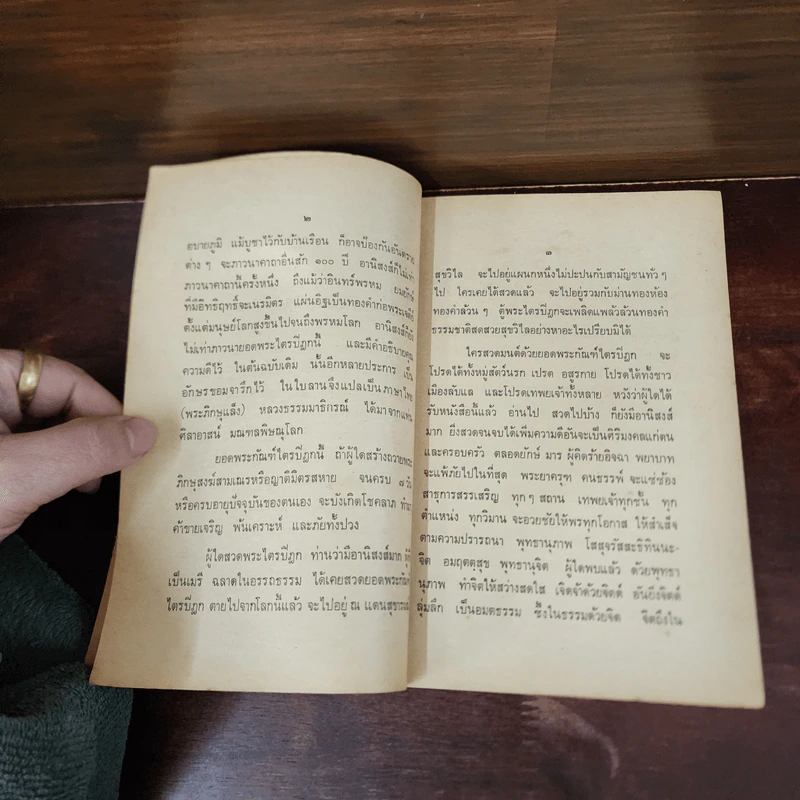 ๒
อบายภูมิ แม้บูชาไว้กับบ้านเรือน ก็อาจป้องกันอันตราย
ต่าง ๆ จะภาวนาคาถาอื่นสัก ๑๐๐ ปี อานิสงส์ก็ไม่เท่า
ภาวนาคาถานี้ครั้งหนึ่ง ถึงแม้ว่าอินทร์พรหม ยมยักษ์
ที่มีอิทธิฤทธิ์จะเนรมิตร แผ่นอิฐเป็นทองคำก่อพระเจดีย์
ตั้งแต่มนุษย์โลกสูงขึ้นไปจนถึงพรหมโลก อานิสงส์ก็ยัง
ไม่เท่าภาวนายอดพระไตรปิฎกนี้ และมีคำอธิบายคุณ
ความดีไว้ ในต้นฉบับเดิม นั้นอีกหลายประการ เป็น
อักษรขอมจารึกไว้ ในใบลานจึงแปลเป็นภาษาไทย
(พระภิกษุแสง) หลวงธรรมมาธิกรณ์ ได้มาจากแท่น
ศิลาอาสน์ มณฑลพิษณุโลก
ยอดพระกัณฑ์ไตรปิฎกนี้ ถ้าผู้ใดสร้างถวายพระ
ภิกษุสงฆ์สามเณรหรือญาติมิตรสหาย จนครบ ๗ วัน
หรือครบอายุปัจจุบันของตนเอง จะบังเกิดโชคลาภ ทำมา
ค้าขายเจริญ พ้นเคราะห์ และภัยทั้งปวง
ผู้ใดสวดพระไตรปิฎก ท่านว่ามีอานิสงส์มาก
เป็นเมรี ฉลาดในอรรถธรรม ได้เคยสวดยอดพระกัณฑ์
ไตรปิฎก ตายไปจากโลกนี้แล้ว จะไปอยู่ ณ แดนสุขารมณ์
๓
สุขวิไล จะไปอยู่แผนกหนึ่งไม่ปะปนกับสามัญชนทั่ว ๆ
ไป ใครเคยได้สวดแล้ว จะไปอยู่รวมกับม่านทองห้อง
ทองคำล้วน ๆ ตู้พระไตรปิฎกจะเพลิดแพล้วล้วนทองคำ
ธรรมชาติสดสวยสุขวิไลอย่างหาอะไรเปรียบมิได้
ใครสวดมนต์ด้วยยอดพระกัณฑ์ไตรปิฎก จะ
โปรดได้ทั้งหมู่สัตว์นรก เปรต อสูรกาย โปรดได้ทั้งชาว
เมืองลับแล และโปรดเทพเจ้าทั้งหลาย หวังว่าผู้ใดได้
รับหนังสือนี้แล้ว อ่านไป สวดไปบ้าง ก็ยังมีอานิสงส์
มาก ยิ่งสวดจนจบได้เพิ่มความดีอันจะเป็นศิริมงคลแก่ตน
และครอบครัว ตลอดยักษ์ มาร ผู้คิดร้ายอิจฉา พยาบาท
จะแพ้ภัยไปในที่สุด พระยาครุฑ คนธรรพ์ จะแซ่ซ้อง
สาธุการสรรเสริญ ทุก ๆ สถาน เทพเจ้าทุกชั้น ทุก
ตำแหน่ง ทุกวิมาน จะอวยชัยให้พรทุกโอกาส ให้สำเร็จ
ตามความปรารถนา พุทธานุภาพ โสสุจวัสสะธิทินนะ-
จิต อมฤตตุสุข พุทธานุจิต ผู้ใดพบแล้ว ด้วยพุทธา
นุภาพ ทำจิตให้สว่างสดใส เจิดจ้าด้วยจิตต์ อันยิ่งจิตต์
ลุ่มลึก เป็นอมตธรรม ซึ้งในธรรมด้วยจิต จิตถึงใน